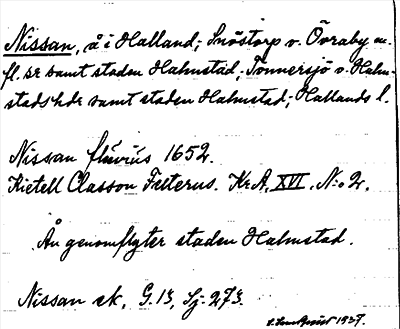 Nissan, å i Halland; Snöstorp o. Övraby m.
fl. sr samt staden Halmstad, Tönnersjö o. Halm-
stads hdr samt staden Halmstad; Hallands l.
Nissan fluvius 1652.
Kietell Classon Felterus. Kr.A. XVI, N:o 2.
Ån genomflyter staden Halmstad.
Nissan ek. G. 13, Sj. 273.
1937.